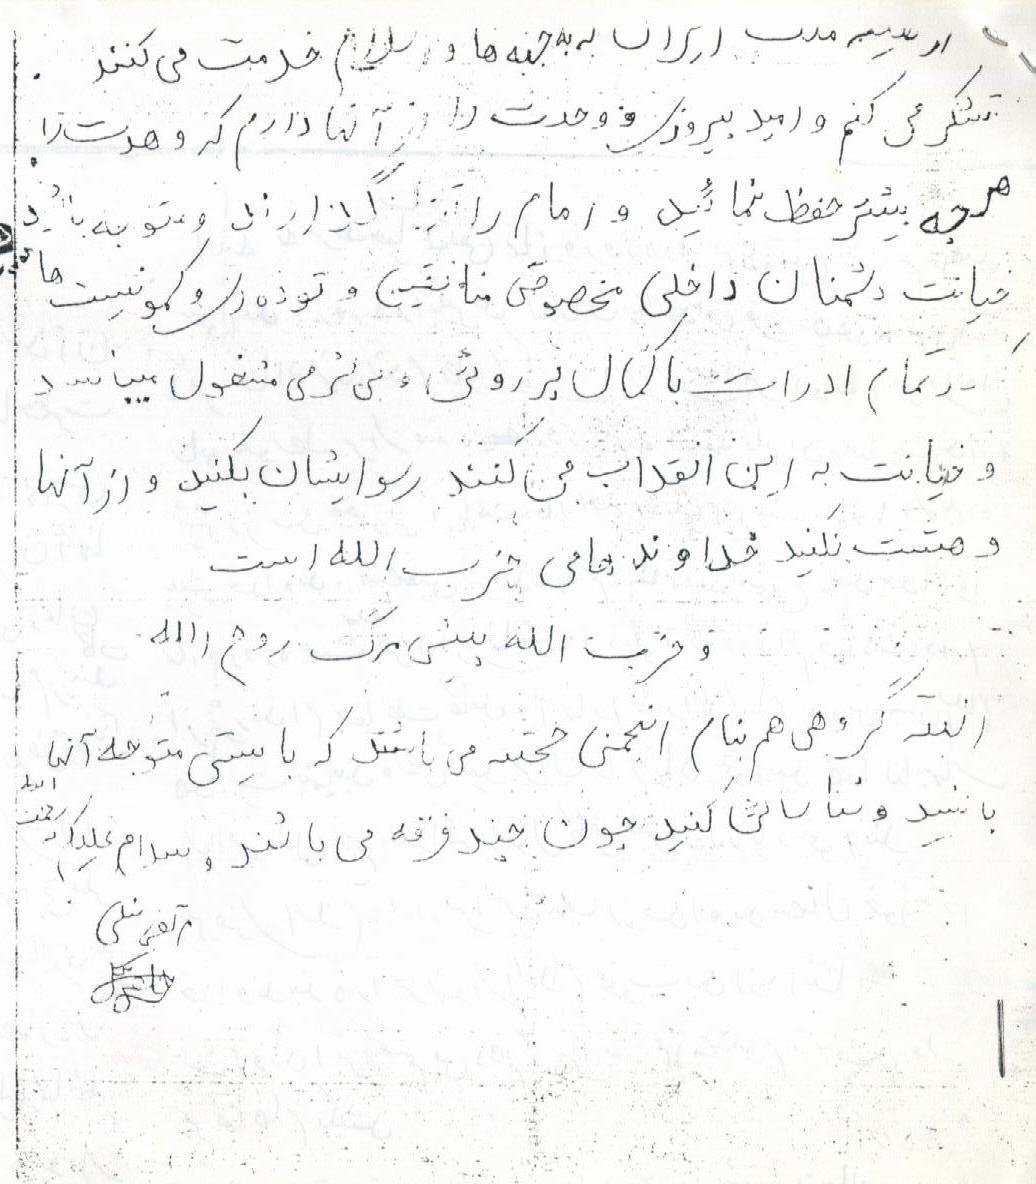 ملت ایران که به جبهه ها و اسلام خدمت می کنند
تشکر می کنم و امید پیروزی و وحدت را از آنها دارم که وحدت را
هرچه بیشتر حفظ نمائید و امام را تنها نگذارند و متوجه باشید
خیانت دشمنان داخلی مخصوصی منافقین و توده ای و کمونیست ها
در تمام ادارات با کمال پر روئی و بی شرمی مشغول میباشد
و خیانت به این انقلاب می کنند رسوایشان بکنید و از آنها
وهشت نکنید خداوند حامی حزب الله است
و حزب الله پیش مرگ روح الله
البته گروهی هم بنام انجمنی حجتیه می باشند که بایستی متوجه آنها
باشید و شناسائی کنید چون چند فرقه می باشند و سلام علیکم